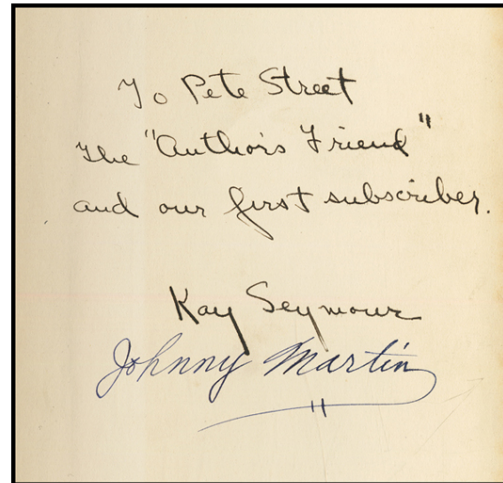 To Pete Street
The "Author's Friend"
and our first subscriber.
Kay Seymour
Johnny Martin